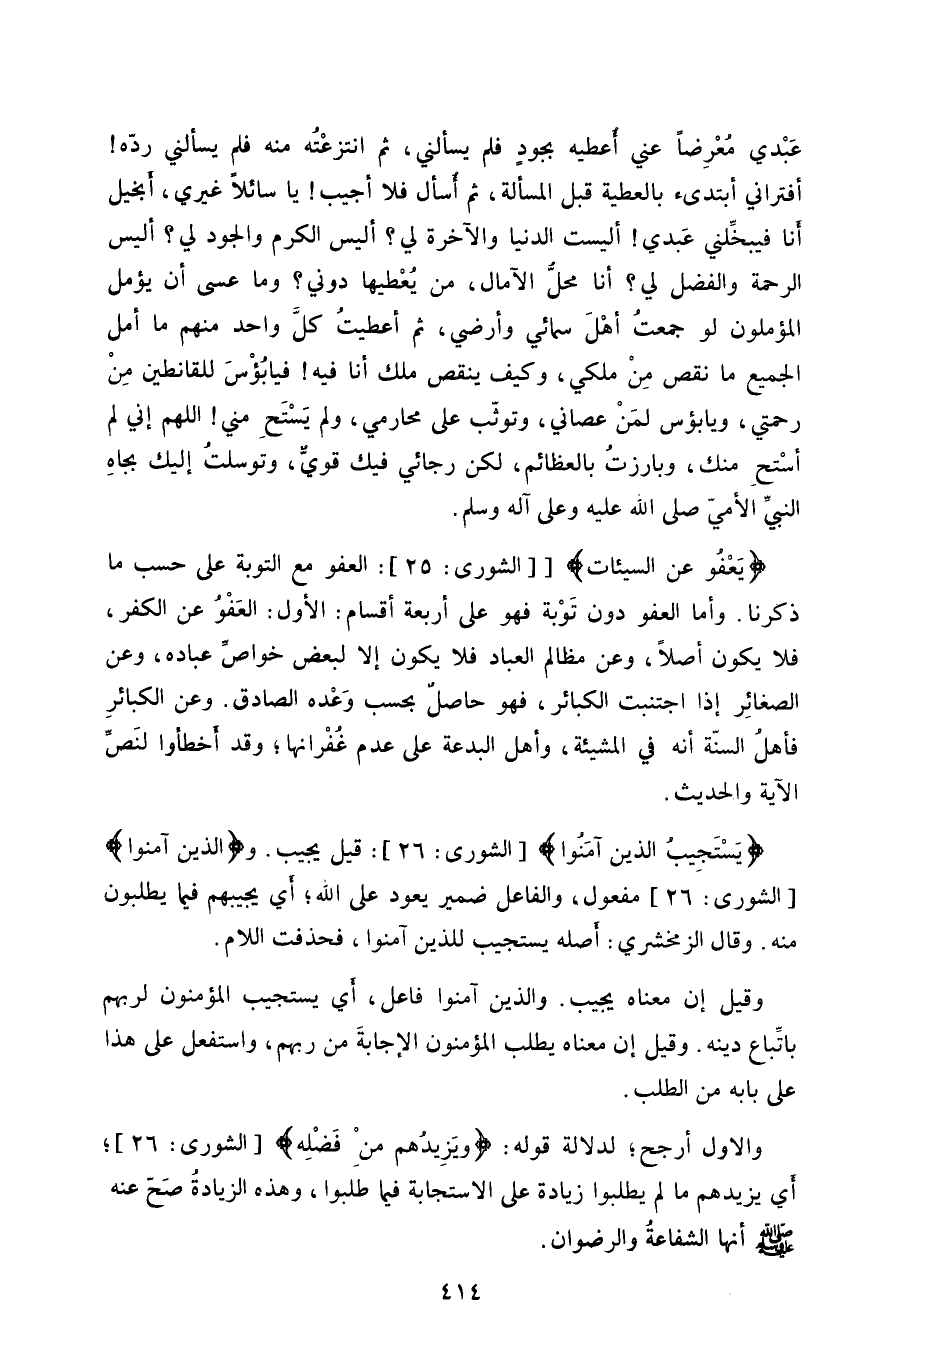 عَبْدي مُعْرِضاً عني أُعطيه بجودٍ فلم يسألني، ثم انتزعْتُه منه فلم يسألني ردّه!
أفتراني أبتدىء بالعطية قبل المسألة، ثم أُسأل فلا أجيب! يا سائلاً غيري، أَبخيل
أَنا فيبخِّلني عَبدي! أليست الدنيا والآخرة لي؟ أليس الكرم والجود لي؟ أليس
الرحمة والفضل لي؟ أنا محلُّ الآمال، من يُعْطيها دوني؟ وما عسى أن يؤمل
المؤملون لو جمعتُ أهْلَ سمائي وأرضي، ثم أعطيتُ كلَّ واحد منهم ما أمل
الجميع ما نقص مِنْ ملكي، وكيف ينقص ملك أنا فيه! فيابُؤْسَ للقانطين مِنْ
رحمتي، ويابؤس لمَنْ عصاني، وتوثّب على محارمي، ولم يَسْتَحِ مني! اللهم إني لم
أسْتحِ منك، وبارزتُ بالعظائم، لكن رجائي فيك قويٌّ، وتوسلتُ إليك بجاهِ
النبيِّ الأميّ صلى الله عليه وعلى آله وسلم.
﴿يَعْفُو عن السيئات﴾ [ [الشورى: ٢٥]: العفو مع التوبة على حسب ما
ذكرنا. وأما العفو دون تَوْبة فهو على أربعة أقسام: الأول: العَفْوُ عن الكفر،
فلا يكون أصلاً، وعن مظالم العباد فلا يكون إلا لبعض خواصِّ عباده، وعن
الصغائِر إذا اجتنبت الكبائر، فهو حاصلٌ بحسب وَعْده الصادق. وعن الكبائرِ
فأهلُ السنّة أنه في المشيئة، وأهل البدعة على عدم غُفْرانها؛ وقد أَخطأوا لنَصِّ
الآية والحديث.
﴿يَسْتَجِيبُ الذين آمَنُوا﴾ [الشورى: ٢٦]: قيل يجيب. و﴿الذين آمنوا﴾
[الشورى: ٢٦] مفعول، والفاعل ضمير يعود على الله؛ أَي يجيبهم فيما يطلبون
منه. وقال الزمخشري: أَصله يستجيب للذين آمنوا، فحذفت اللام.
وقيل إن معناه يجيب. والذين آمنوا فاعل، أَي يستجيب المؤمنون لربهم
باتِّباع دينه. وقيل إن معناه يطلب المؤمنون الإجابةَ من ربهم، واستفعل على هذا
على بابه من الطلب.
والاول أرجح؛ لدلالة قوله: ﴿ويَزِيدُهم منْ فَضْلِه﴾ [الشورى: ٢٦]؛
أَي يزيدهم ما لم يطلبوا زيادة على الاستجابة فيما طلبوا، وهذه الزيادةُ صَحّ عنه
ﷺ أنها الشفاعةُ والرضوان.
٤١٤